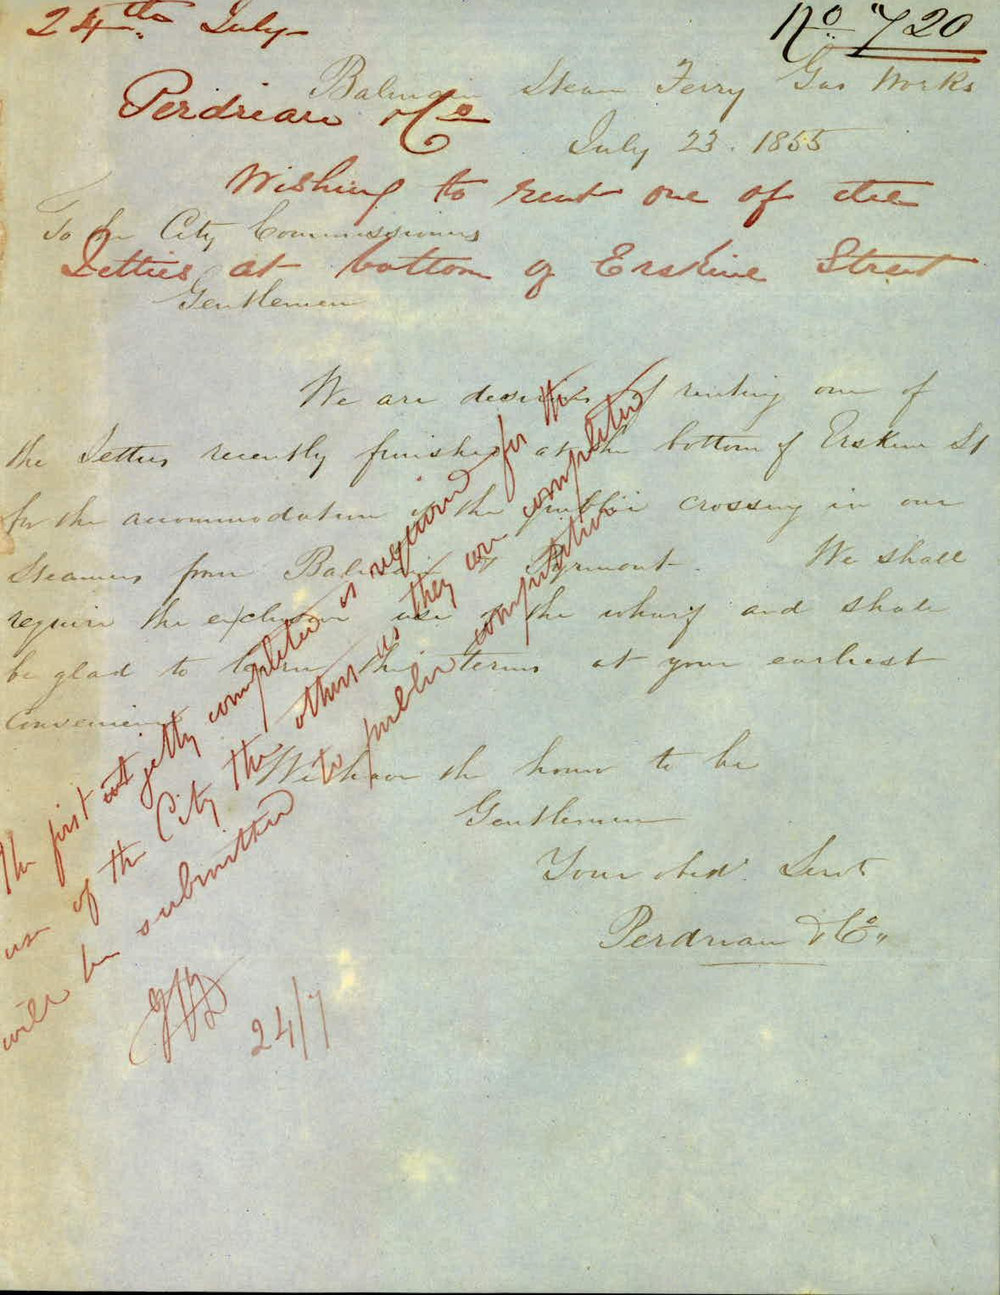 24th July
No 720
Balmain Steam Ferry Gas Works
Perdriau & Co
July 23. 1855
Wishing to rent one of the
To the City Commissioners
Jetties at bottom of Erskine Street
Gentlemen
We are desirous of renting one of
the Jetties recently finished at the bottom of Erskine St
for the accommodation of the public crossing in our
Steamers from Balmain & Pyrmont. We shall
require the exclusive use of the wharf and shall
be glad to learn the terms at your earliest
convenience
We have the honor to be
Gentlemen
Your obed. Servts
Perdriau & Co.
The first jetty completed is required for the
use of the City the others as they are completed
will be submitted to public competition
24/7